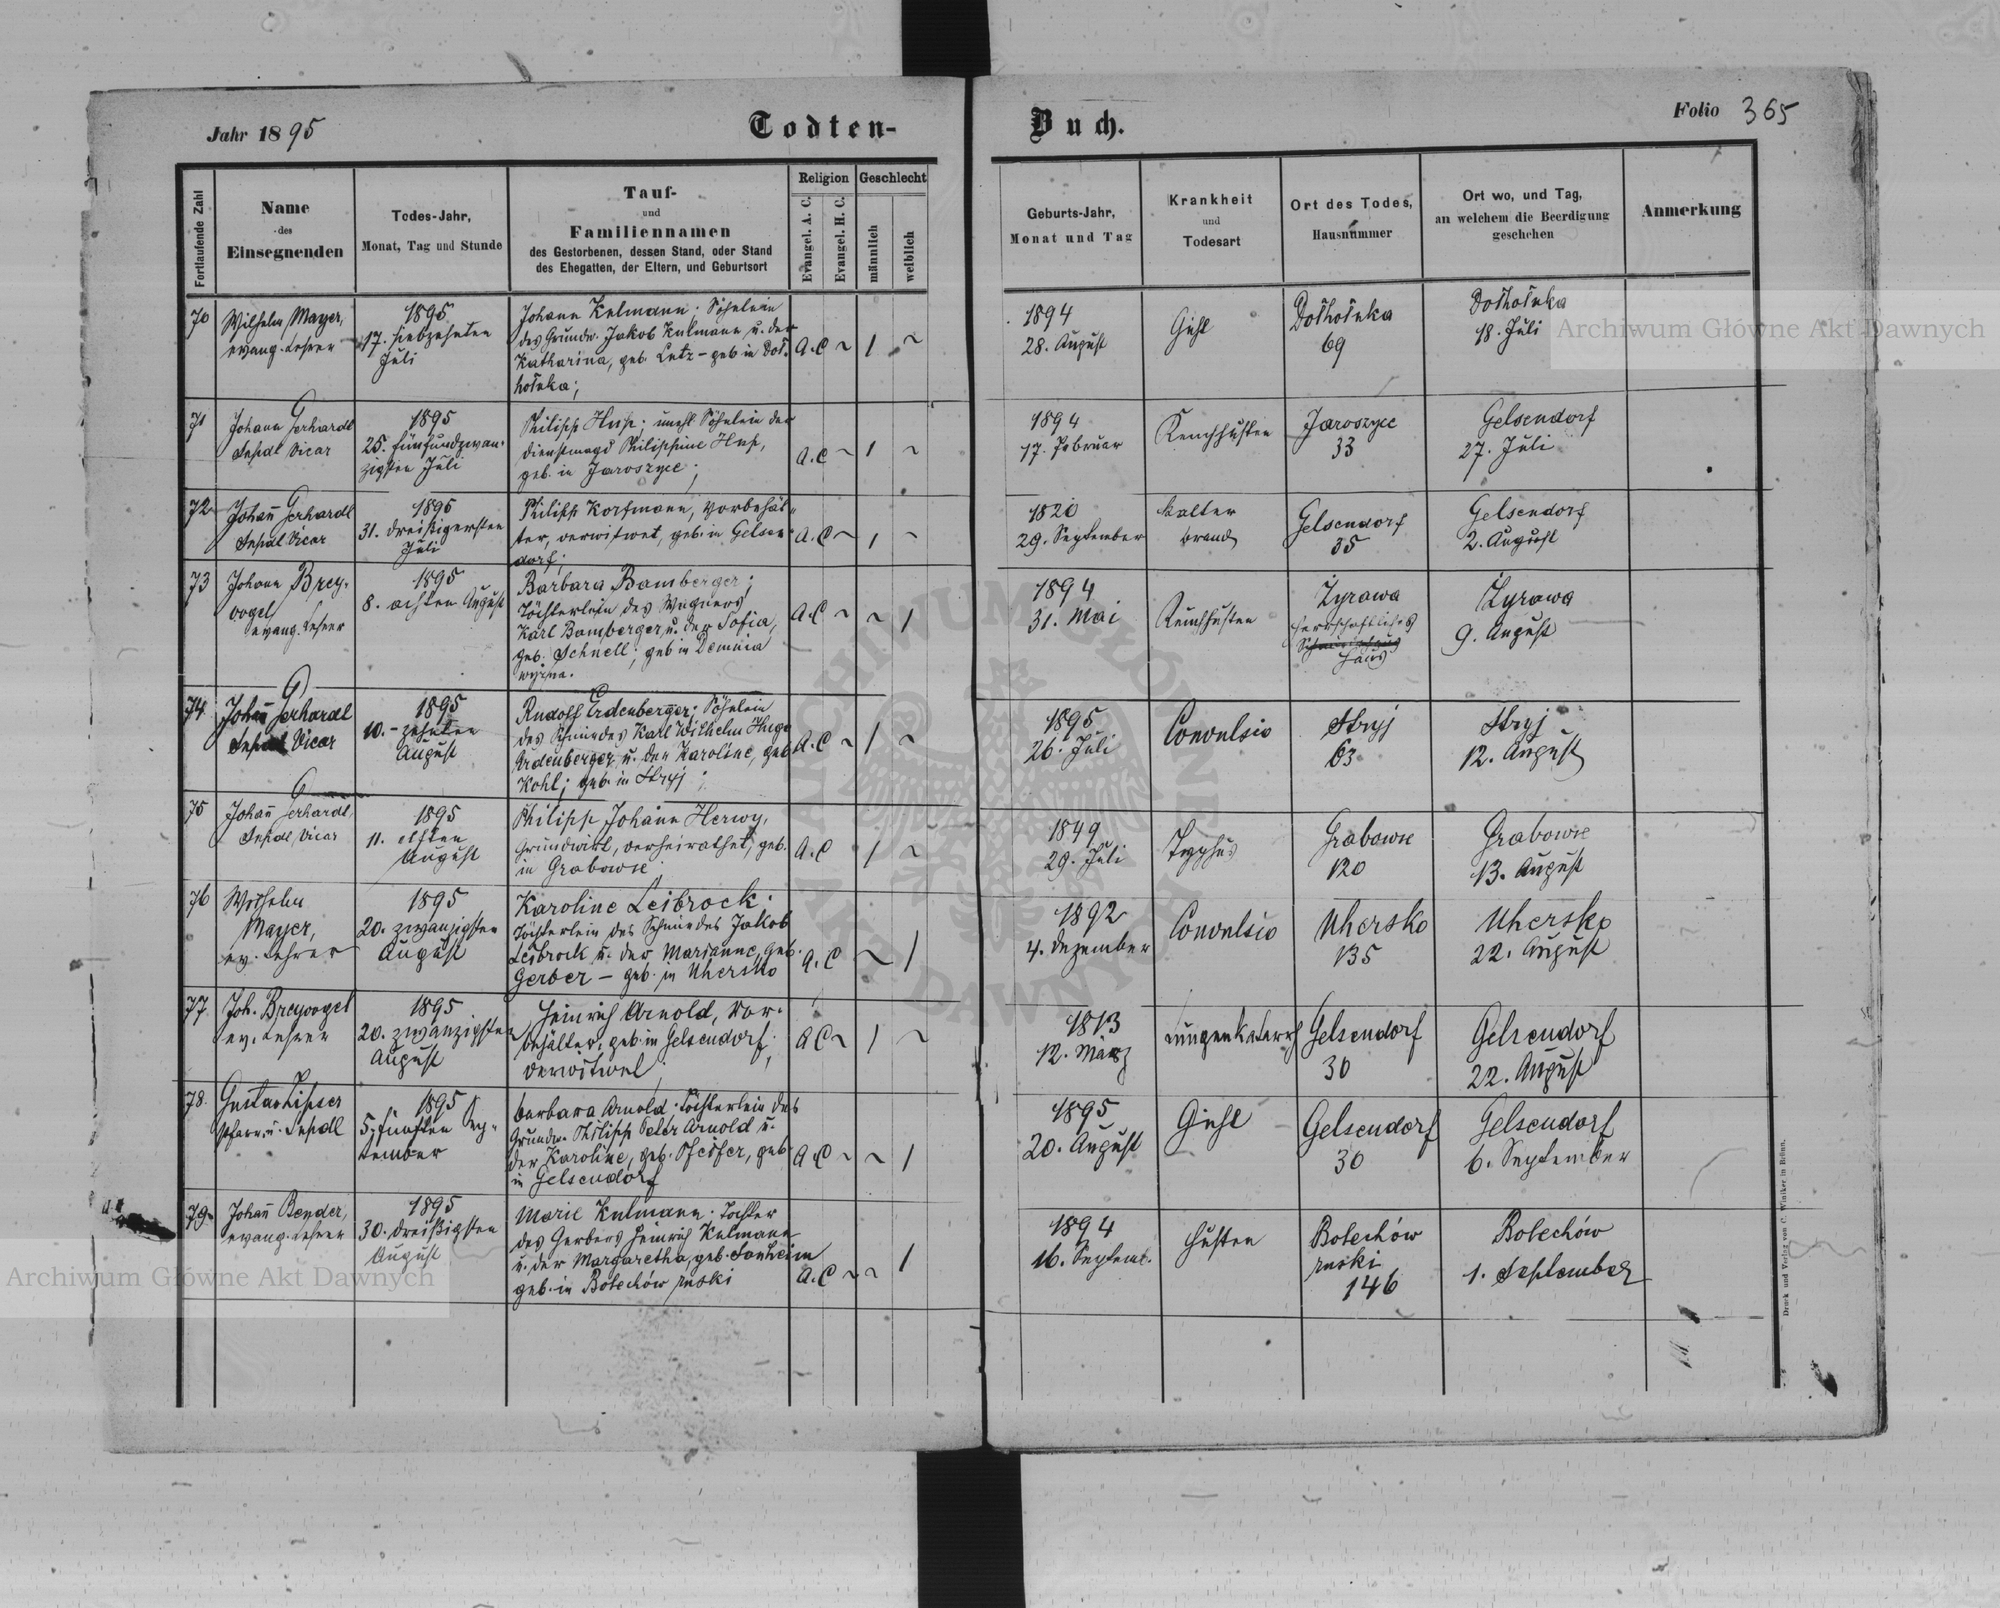 Jahr 1895
Todten-
Buch.
Folio 365
Fortlaufende Zahl
Name
des
Einsegnenden
Todes-Jahr,
Monat, Tag und Stunde
Tauf-
und
Familiennamen
des Gestorbenen, dessen Stand, oder Stand
des Ehegatten, der Eltern, und Geburtsort
Religion
Evangel. A. C.
Evangel. H. C.
Geschlecht
männlich
weiblich
Geburts-Jahr,
Monat und Tag
Krankheit
und
Todesart
Ort des Todes,
Hausnummer
Ort wo, und Tag,
an welchem die Beerdigung
geschehen
Anmerkung
70
Wilhelm Mayer,
evang. Lehrer
1895
17. siebzehnten
Juli
Johann Kulmann; Söhnlein
des Grundw. Jakob Kulmann u. der
Katharina, geb. Lutz – geb. in Doł-
hołuka;
A.C ~ 1 ~
1894
28. August
Gicht
Dołhołuka
69
Dołhołuka
18. Juli
71
Johann Gerhardt
Vicar
1895
25. fünfundzwan-
zigsten Juli
Philipp; unehl. Söhnlein der
Dienstmagd Philippine
geb. in Jaroszyce;
A.C ~ 1 ~
1894
17. Februar
Keuchhusten
Jaroszyce
33
Gelsendorf
27. Juli
72
Johañ Gerhardt
Vicar
1895
31. dreißigersten
Juli
Philipp Korfmann, Vorbehäl-
ter, verwitwet, geb. in Gelsen-
dorf;
A.C ~ 1 ~
1820
29. September
kalter
Brand
Gelsendorf
35
Gelsendorf
2. August
73
Johann Brey-
vogel
evang. Lehrer
1895
8. achten August
Barbara Bamberger;
Töchterlein des Wagners
Karl Bamberger u. der Sofia,
geb. Schnell; geb. in
A.C ~ ~ 1
1894
31. Mai
Keuchhusten
Żyrawa
herrschaftliches
Haus
Żyrawa
9. August
74
Johañ Gerhardt
Vicar
1895
10. – zehnten
August
Rudolf Erdenberger; Söhnlein
des Schmiedes Karl Wilhelm Hugo
Erdenberger u. der Karoline, geb.
Kohl; geb. in Stryj;
A.C ~ 1 ~
1895
26. Juli
Convulsio
Stryj
63
Stryj
12. August
75
Johañ Gerhardt,
Vicar
1895
11. elften
August
Philipp Johann Herwy,
Grundwirt, verheirathet; geb.
in Grabowce
A.C 1 ~
1849
29. Juli
Typhus
Grabowce
120
Grabowce
13. August
76
Wilhelm
Mayer,
ev. Lehrer
1895
20. zwanzigsten
August
Karoline Leibrock;
Töchterlein des Schmiedes Jakob
Leibrock u. der Marianne, geb.
Gerber – geb. in Uhersko
A.C ~ 1
1892
4. Dezember
Convulsio
Uhersko
135
Uhersko
22. August
77
Joh. Breyvogel
ev. Lehrer
1895
20. zwanzigsten
August
Heinrich Arnold, Vor-
behälter; geb. in Gelsendorf;
verwitwet
A C ~ 1 ~
1813
12. März
Lungenkatarrh
Gelsendorf
30
Gelsendorf
22. August
78.
Gustav Lipser
Pfarr. u.
1895
5. fünften Sep-
tember
Barbara Arnold; Töchterlein des
Grundw. Philipp Peter Arnold u.
der Karoline, geb. Pfeifer, geb.
in Gelsendorf
A.C ~ ~ 1
1895
20. August
Gicht
Gelsendorf
30
Gelsendorf
6. September
79.
Johañ Bender,
evang. Lehrer
1895
30. dreißigsten
August
Marie Kulmann; Tochter
des Gerbers Heinrich Kulmann
u. der Margaretha, geb.
geb. in Bolechów ruski
A.C ~ ~ 1
1894
16. Septem.
Husten
Bolechów
ruski
146
Bolechów
1. September
Druck und Verlag von C. Winiker in Brünn.
Archiwum Główne Akt Dawnych
Archiwum Główne Akt Dawnych
ARCHIWUM GŁÓWNE AKT DAWNYCH